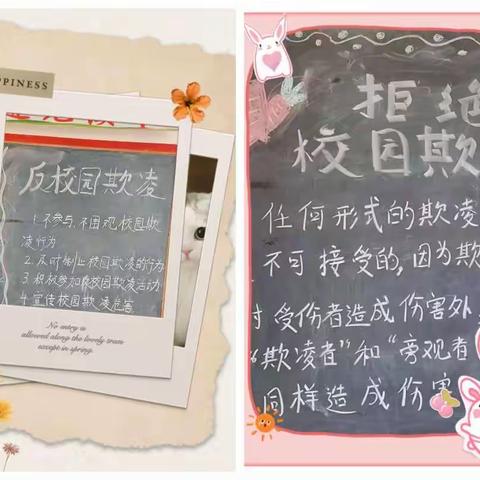 PPINESS
反校园欺凌
1.不参与、不围观校园欺
凌行为
2.及时制止校园欺凌的行为
3.积极参加反校园欺凌活动
4.宣传校园欺凌危害
No entry is
allowed along the lovely tram
except in spring.
拒绝
校园欺
任何形式的欺凌
不可接受的,因为欺
对受伤者造成伤害外
“欺凌者”和“旁观者
同样造成伤害